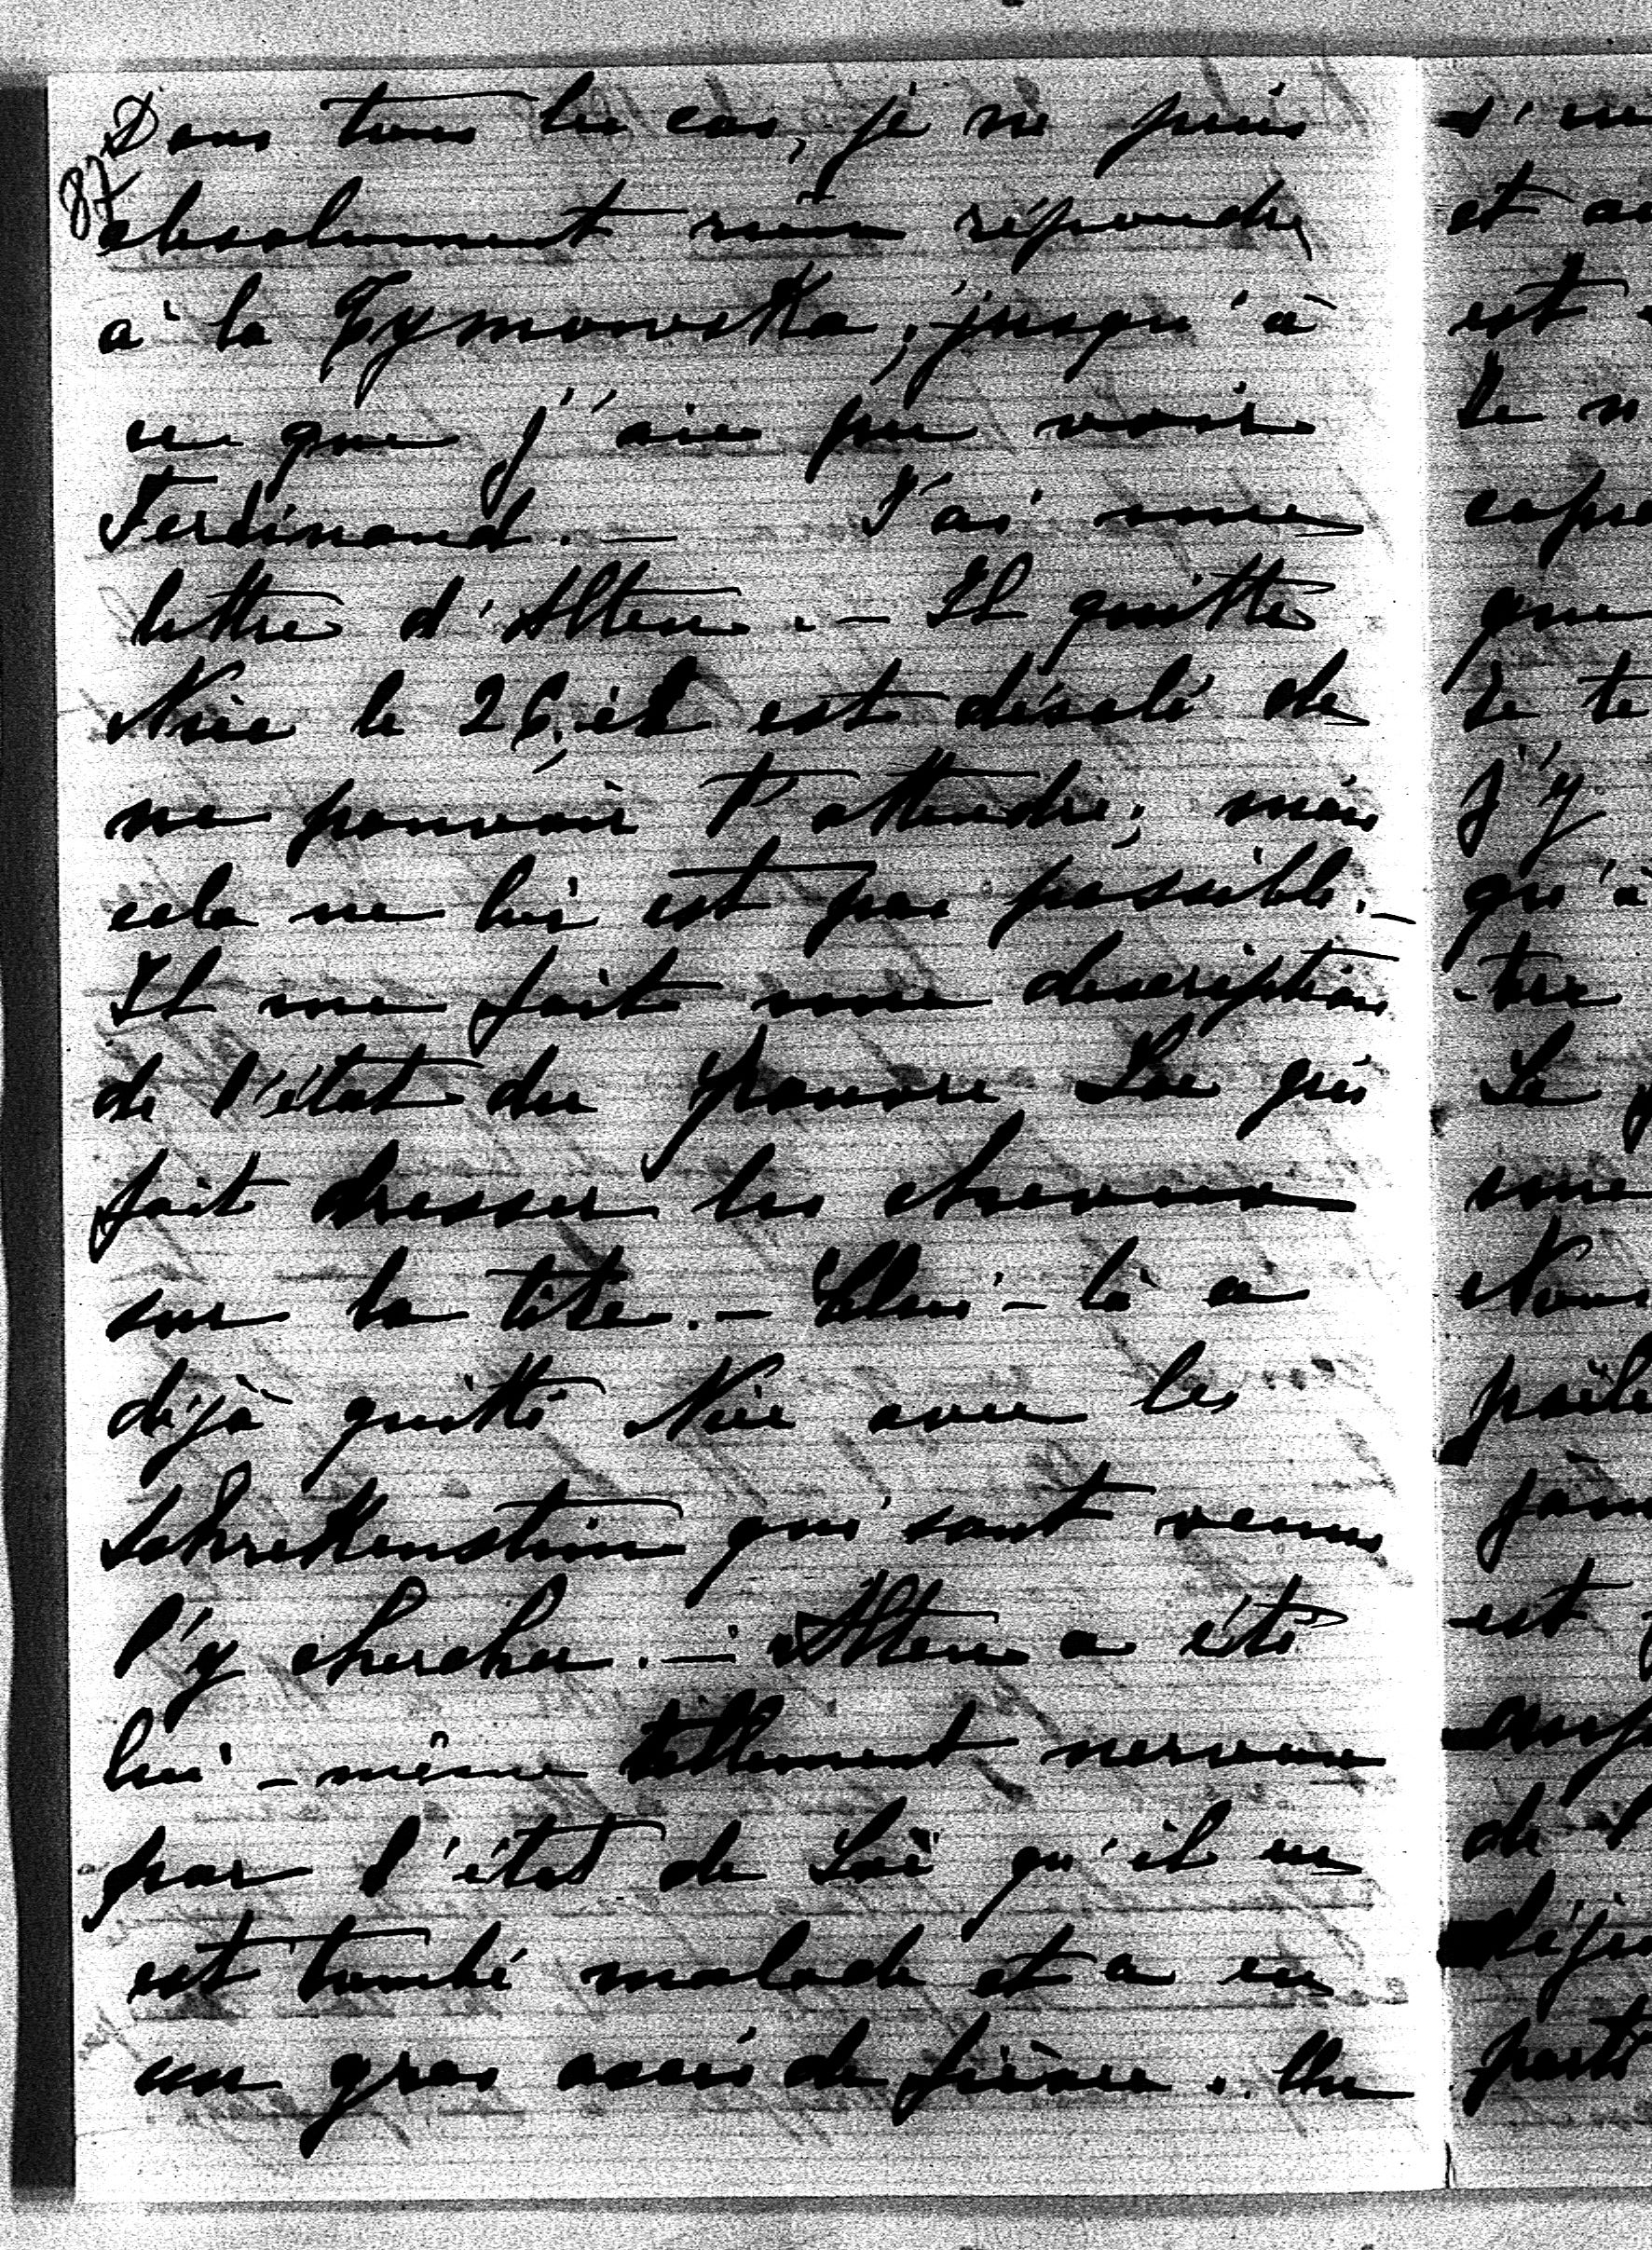 Dans tous les cas, je ne puis
87
absolument rien répondre
à la Tymowska, jusqu'à
ce que j'aie pu voir
Ferdinand. — J'ai une
lettre d'Alten. — Il quitte
Nice le 26, et est désolé de
ne pouvoir t'attendre; mais
cela ne lui est pas possible. —
Il me fait une description
de l'état du pauvre Loë qui
fait dresser les cheveux
sur la tête. — Celui-là a
déjà quitté Nice avec les
Schrekenstein qui sont venus
l'y chercher. — Alten a été
lui-même tellement nerveux
par l'état de Loë qu'il en
est tombé malade et a eu
un gros accès de fièvre. Un